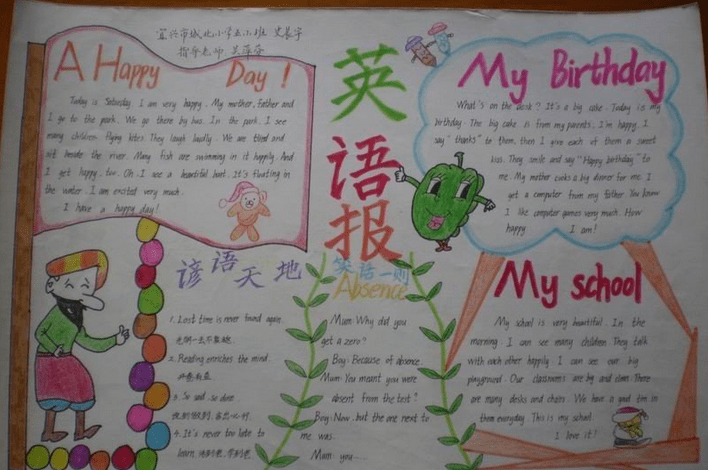 宜兴市城北小学五六班 史长宇
指导老师 吴萍萍
A Happy Day!
Today is Saturday. I am very happy. My mother, father and
I go to the park. We go there by bus. In the park, I see
many children flying kites. They laugh loudly. We are tired and
sit beside the river. Many fish are swimming in it happily. And
I get happy, too. Oh, I see a beautiful boat. It's floating in
the water. I am excited very much.
I have a happy day!
英
语
报
My Birthday
What's on the desk? It's a big cake. Today is my
birthday. The big cake is from my parents, I'm happy. I
say "thanks" to them, then I give each of them a sweet
kiss. They smile and say "Happy birthday" to
me. My mother cooks a big dinner for me. I
get a computer from my father. You know
I like computer games very much. How
happy I am!
谚语天地
1. Lost time is never found again.
2. Reading enriches the mind.
开卷有益
3. So said, so done.
说到做到,言出必行.
4. It's never too late to
learn. 活到老,学到老.
笑话一则
Absence
Mum: Why did you
get a zero?
Boy: Because of absence.
Mum: You meant you were
absent from the test?
Boy: Now, but the one next to
me was.
Mum: you....
My school
My school is very beautiful. In the
morning, I can see many children. They talk
with each other happily. I can see our big
playground. Our classrooms are big and clean. There
are many desks and chairs. We have a good time in
them everyday. This is my school.
I love it!